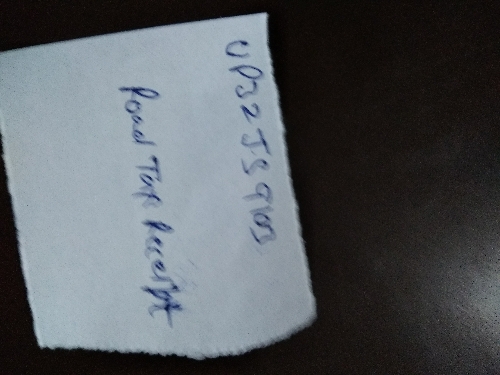 UP32JS9103
Road Tax Receipt